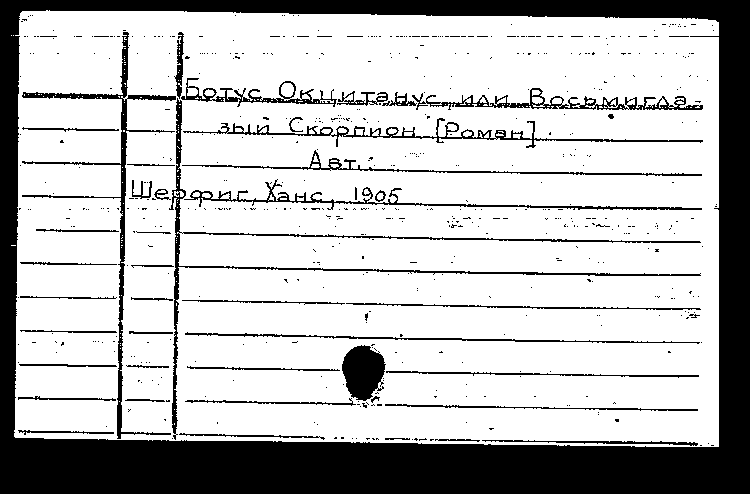 Ботус Окцитанус или Восьмигла-
зый Скорпион [Роман]
Авт.:
Шерфиг, Ханс, 1905